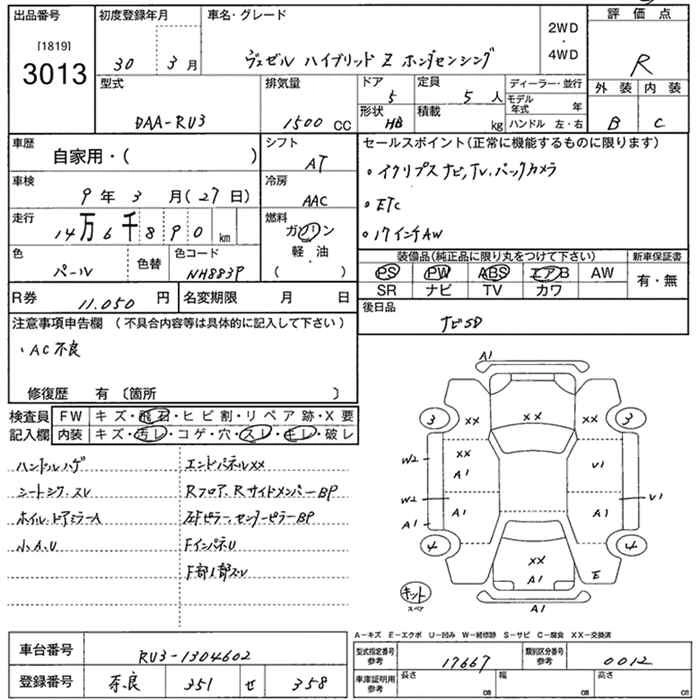 出品番号 初度登録年月 車名・グレード 評価点
[1819]
3013
30 3月 ヴェゼル ハイブリッド Z ホンダセンシング 2WD・4WD R
型式 排気量 ドア 定員 ディーラー・並行 外装 内装
DAA-RU3 1500 CC 5 5人 モデル年式 年
形状 HB 積載 kg ハンドル 左・右 B C
車歴 シフト セールスポイント(正常に機能するものに限ります)
自家用・( ) AT ・イクリプスナビ,TV,バックカメラ
車検 9年 3月(27日) 冷房 AAC ・ETC
走行 14万6千890km 燃料 ガソリン・軽油 ( ) ・17インチAW
色 パール 色替 色コード NH883P
装備品(純正品に限り丸をつけて下さい) 新車保証書
PS PW ABS エアB AW 有・無
SR ナビ TV カワ
R券 11.050円 名変期限 月 日 後日品
ナビSD
注意事項申告欄 (不具合内容等は具体的に記入して下さい)
・AC不良
修復歴 有 〔箇所 〕
検査員記入欄 FW キズ・飛石・ヒビ割・リペア跡・X要
内装 キズ・汚レ・コゲ・穴・スレ・キレ・破レ
ハンドルハゲ エンドパネルXX
シートシワ.スレ Rフロア.RサイドメンバーBP
ホイル.ドアミラーA 左Fピラー.センターピラーBP
小A.U FインパネU
F部1部ズレ
A1
3 XX XX XX 3
W2 XX A1 U1
W2 A1 A1 U1
A1
4 XX A1 E 4
キット
スペア
A1
A-キズ E-エクボ U-凹み W-補修跡 S-サビ C-腐食 XX-交換済
車台番号 RU3-1304602 型式指定番号 参考 17667 類別区分番号 参考 0012
登録番号 奈良 351 せ 358 車庫証明用 参考 長さ cm 幅 cm 高さ cm